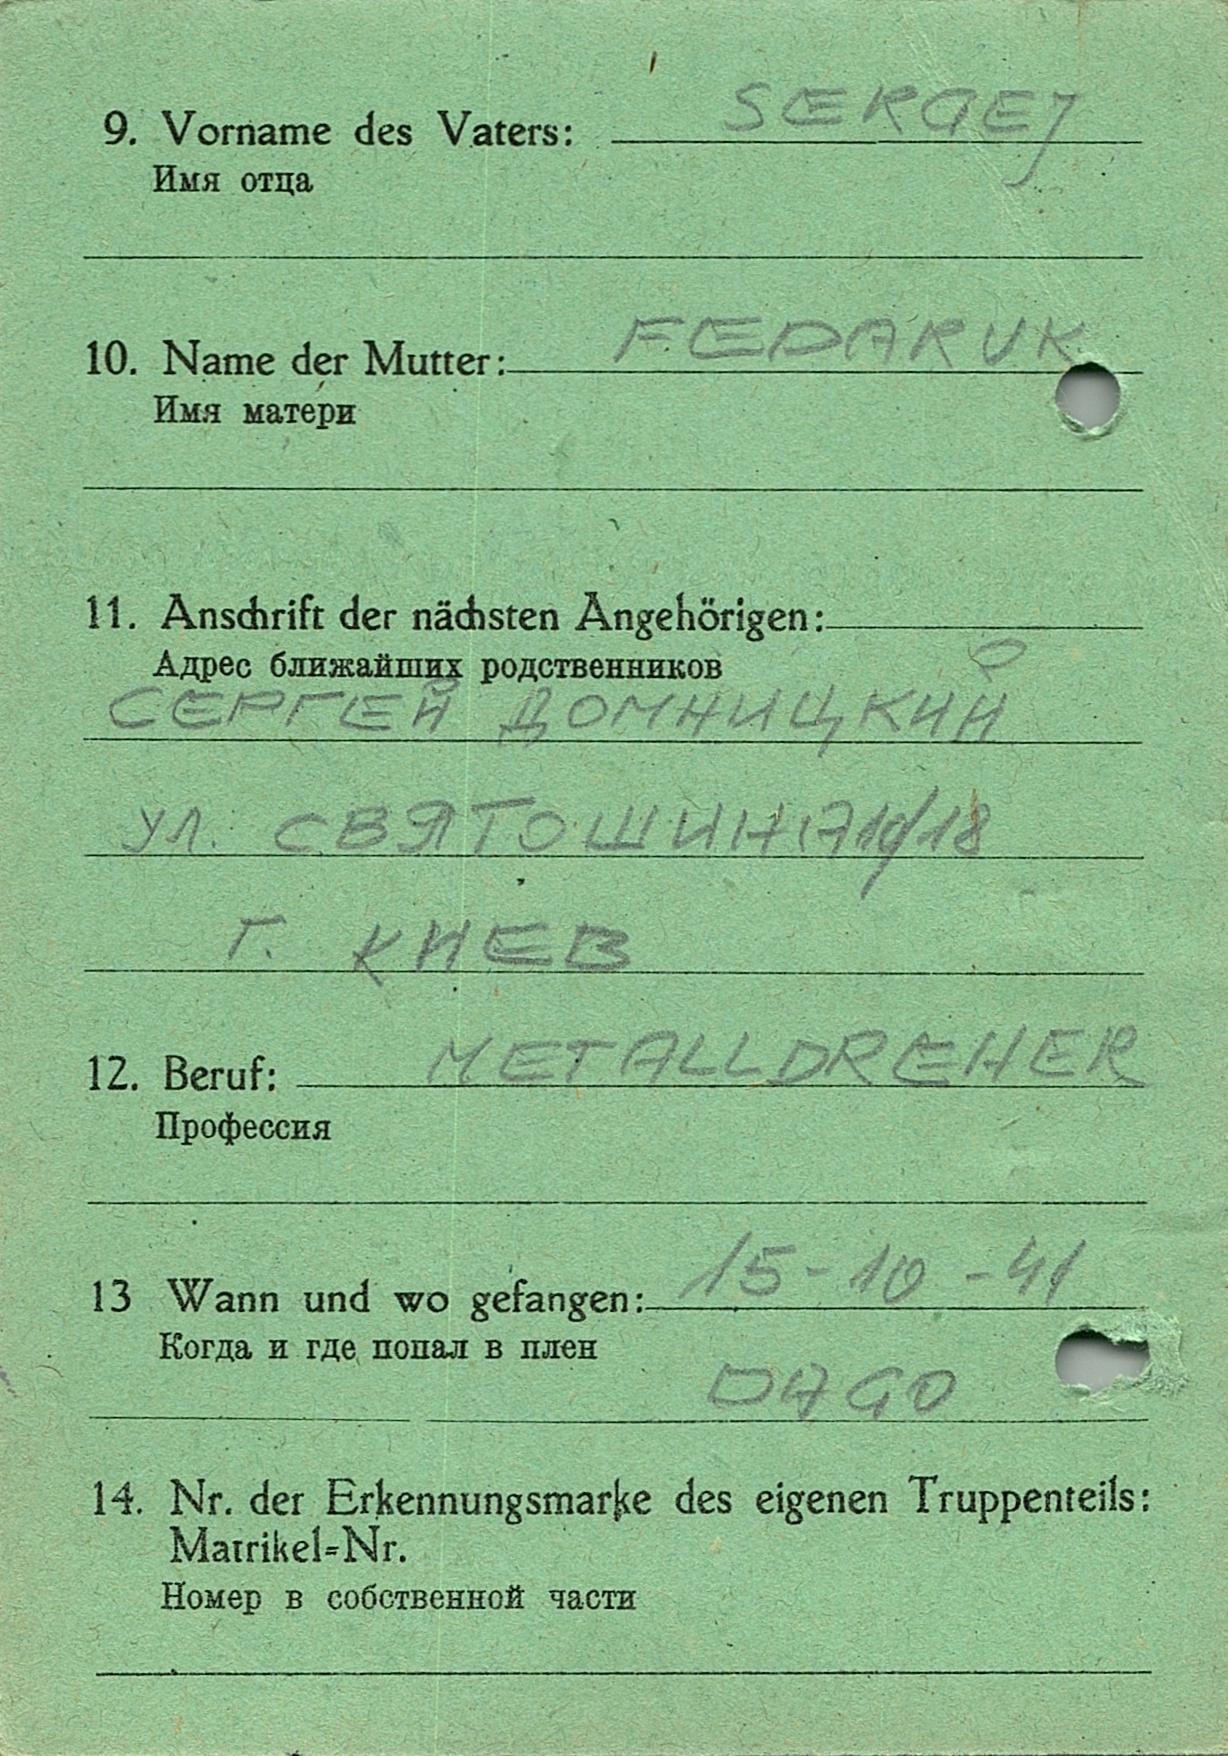 9. Vorname des Vaters: SERGEJ
Имя отца
10. Name der Mutter: FEDARUK
Имя матери
11. Anschrift der nächsten Angehörigen:
Адрес ближайших родственников
СЕРГЕЙ ДОМНИЦКИЙ
УЛ. СВЯТОШИНА 10/18
Г. КИЕВ
12. Beruf: METALLDREHER
Профессия
13 Wann und wo gefangen: 15-10-41
Когда и где попал в плен
DAGO
14. Nr. der Erkennungsmarke des eigenen Truppenteils:
Matrikel-Nr.
Номер в собственной части